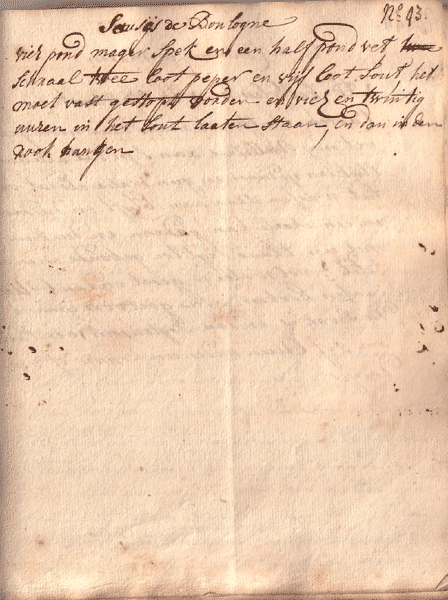 Sausis de Boulogne
No 93.
vier pond mager spek en een half pond vet
schraael twee loot peper en vijf loot sout het
moet vast gestopt worden en vier en twintig
uuren in het sout laaten staan, en dan in den
rook hangen